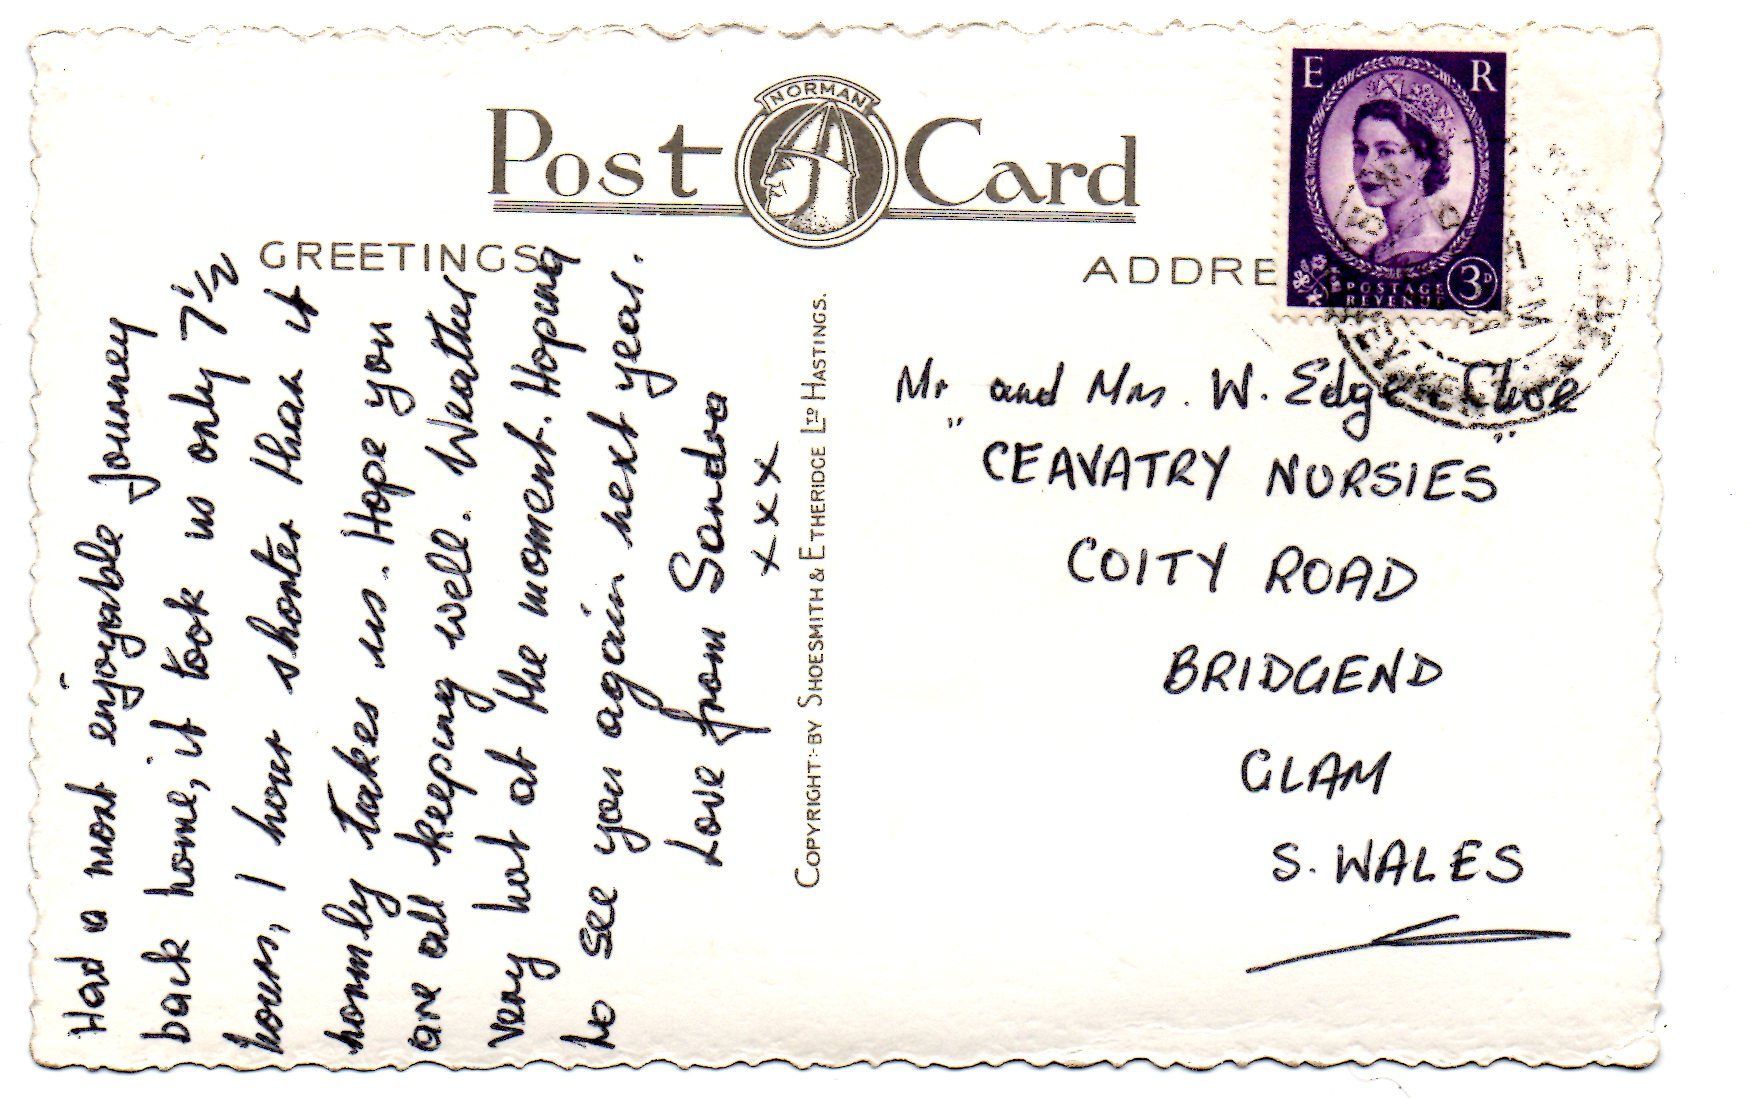 Post Card
NORMAN
GREETINGS
ADDRE
E R
POSTAGE
REVENUE
3D
Had a most enjoyable journey
back home, it took us only 7½
hours, 1 hour shorter than it
normly takes us. Hope you
are all keeping well. Weather
very hot at the moment. Hoping
to see you again next year.
Love from Sandra
xxx
COPYRIGHT:-BY SHOESMITH & ETHERIDGE LTD HASTINGS.
Mr and Mrs. W. Edge. Clive
"CEAVATRY NURSIES"
COITY ROAD
BRIDGEND
GLAM
S. WALES